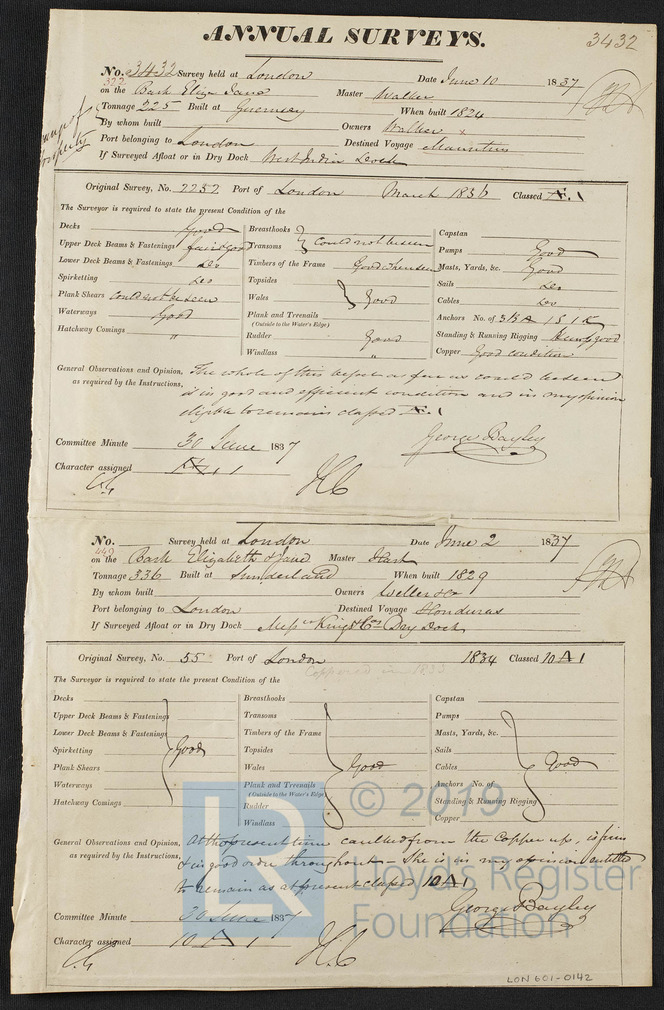 ANNUAL SURVEYS.
3432
No. 3432 Survey held at London Date June 10 1837
322
on the Bark Eliza Jane Master Walker
Tonnage 225 Built at Guernsey When built 1824
By whom built Owners Walker
Port belonging to London Destined Voyage Mauritius
If Surveyed Afloat or in Dry Dock West India Dock
change of
property
Original Survey, No. 2252 Port of London March 1836 Classed Æ.1
The Surveyor is required to state the present Condition of the
Decks Good
Upper Deck Beams & Fastenings fair & good
Lower Deck Beams & Fastenings do
Spirketting do
Plank Shears Could not be seen
Waterways Good
Hatchway Comings "
Breasthooks
Transoms Could not be seen
Timbers of the Frame Good when seen
Topsides
Wales Good
Plank and Treenails
(Outside to the Water's Edge)
Rudder Good
Windlass "
Capstan
Pumps Good
Masts, Yards, &c. Good
Sails do
Cables do
Anchors No. of 3 B 1 S 1 K
Standing & Running Rigging good
Copper Good condition
General Observations and Opinion, The whole of this as far as could be seen
as required by the Instructions, is in good and efficient condition and in my opinion
eligible to remain classed Æ.1
George Bayley
Committee Minute 30 June 1837
Character assigned Æ 1
No. Survey held at London Date June 2 1837
449
on the Bark Elizabeth & Jane Master
Tonnage 336 Built at Sunderland When built 1829
By whom built Owners Weller &co
Port belonging to London Destined Voyage Honduras
If Surveyed Afloat or in Dry Dock Messrs King & Cos Dry Dock
Original Survey, No. 55 Port of London 1834 Classed 10 A 1
Coppered in 1833
The Surveyor is required to state the present Condition of the
Decks
Upper Deck Beams & Fastenings
Lower Deck Beams & Fastenings
Spirketting Good
Plank Shears
Waterways
Hatchway Comings
Breasthooks
Transoms
Timbers of the Frame
Topsides
Wales Good
Plank and Treenails
(Outside to the Water's Edge)
Rudder
Windlass
Capstan
Pumps
Masts, Yards, &c.
Sails
Cables Good
Anchors No. of
Standing & Running Rigging
Copper
General Observations and Opinion, At the present time caulked from the Copper up, is firm
as required by the Instructions, & in good order throughout - She is in my opinion entitled
to remain as at present classed 10 A 1
George Bayley
Committee Minute 30 June 1837
Character assigned 10 A 1
© 2019
LR
Lloyd's Register
Foundation
LON 601-0142